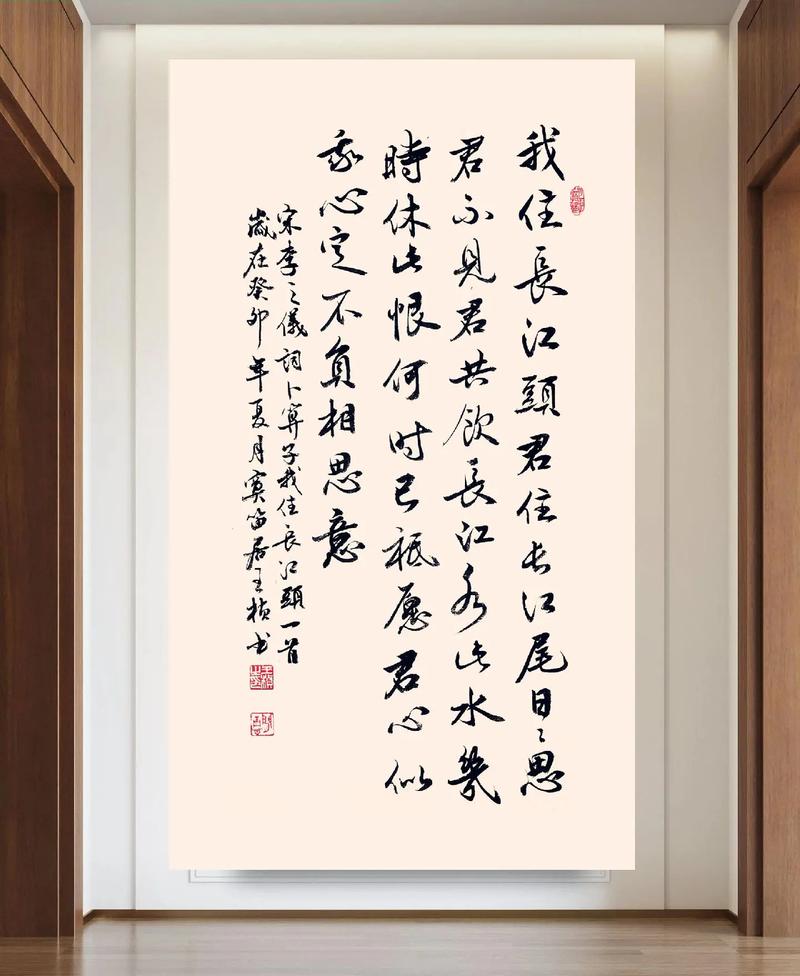 我住長江頭君住长江尾日々思
君不見君共飲長江水此水幾
時休此恨何时已祗愿君心似
我心定不負相思意
宋李之儀詞卜算子我住長江頭一首
歲在癸卯年夏月寞笛居王桢书